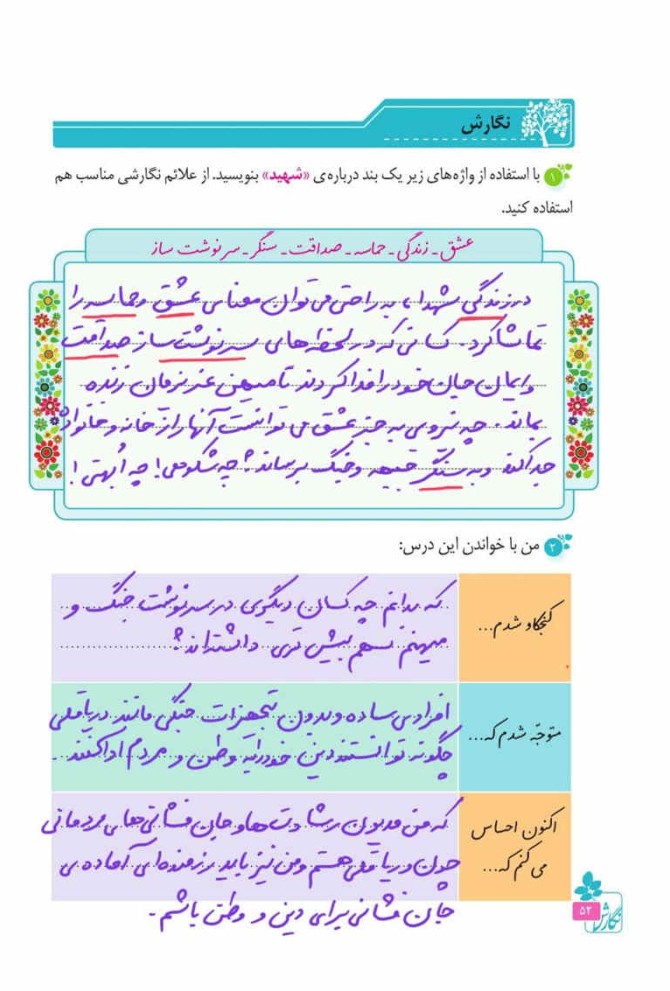 نگارش
۱ با استفاده از واژه‌های زیر یک بند درباره‌ی «شهید» بنویسید. از علائم نگارشی مناسب هم
استفاده کنید.
عشق ـ زندگی ـ حماسه ـ صداقت ـ سنگر ـ سرنوشت ساز
در زندگی شهدا، به راحتی می‌توان معنای عشق و حماسه را
تماشا کرد. کسانی که در لحظه‌های سرنوشت ساز صداقت
وایمان جان خود را فدا کردند تا میهن عزیزمان زنده
بماند. چه نیروی به جز عشق می توانست آنها را از خانه و خانواده
جدا کند و به سنگر جبهه و جنگ برساند؟ چه شکوهی! چه اُبهتی!
۲ من با خواندن این درس:
کنجکاو شدم...
که بدانم چه کسان دیگری در سرنوشت جنگ و
میهنم سهم بیش تری داشته‌اند؟
متوجّه شدم که...
افرادی ساده و بدون تجهیزات جنگی مانند دریاقلی
چگونه توانستند دین خود را به وطن و مردم ادا کنند.
اکنون احساس
می کنم که...
که من مدیون رشادت‌ها و جان فشانی‌های مردمانی
چون دریاقلی هستم و من نیز باید رزمنده‌ای آماده‌ی
جان فشانی برای دین و وطن باشم.
نگارش
۵۲